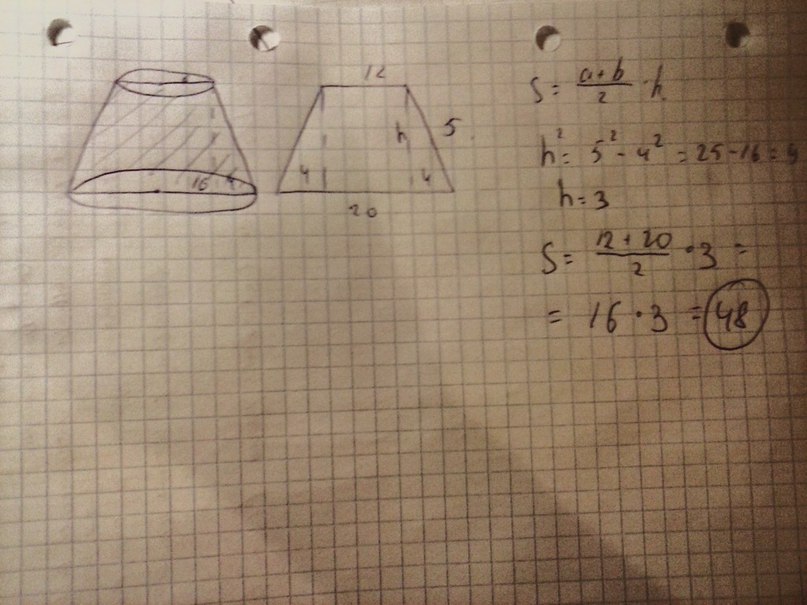 12
h
5
4
4
20
S = (a+b)/2 · h
h² = 5² - 4² = 25 - 16 = 9
h = 3
S = (12 + 20)/2 · 3 =
= 16 · 3 = 48